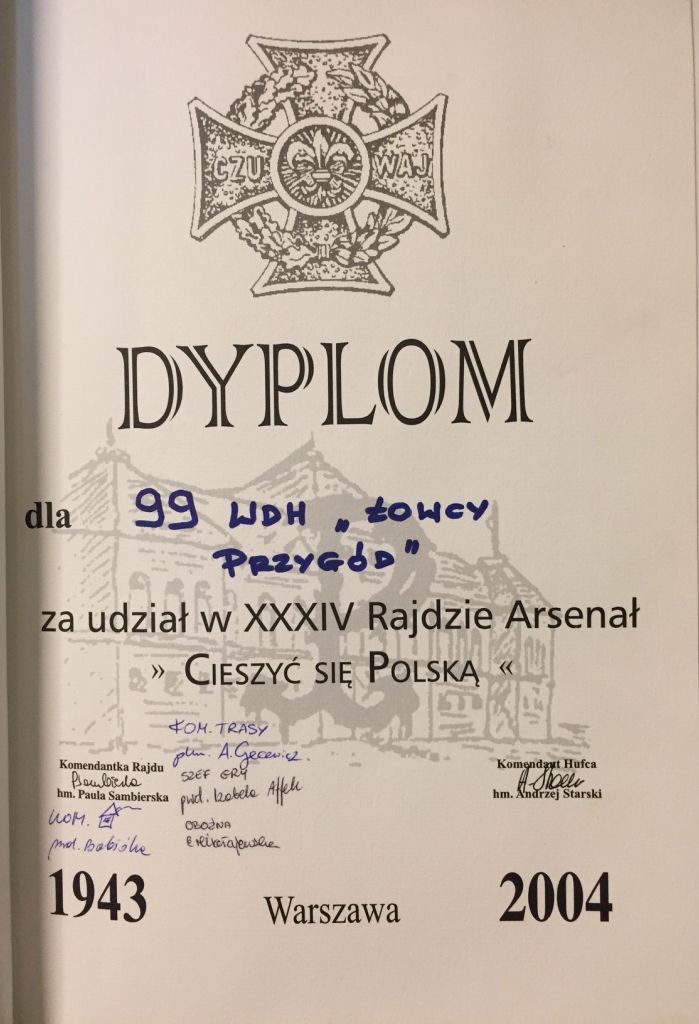 CZU WAJ
DYPLOM
dla 99 WDH „ŁOWCY
PRZYGÓD"
za udział w XXXIV Rajdzie Arsenał
» CIESZYĆ SIĘ POLSKĄ «
KOM. TRASY
phm. A. Gecewicz.
SZEF GRY
pwd. Izabela Affek
OBOŹNA
Komendantka Rajdu
hm. Paula Sambierska
KOM.
Komendant Hufca
hm. Andrzej Starski
1943 Warszawa 2004